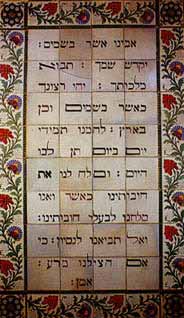 אבינו אשר בשמים:
יקדש שמך: תבוא
מלכותך: יהי רצונך
כאשר בשמים וכן
בארץ: לחמנו תמידי
יום ביום תן לנו
היום: וסלח לנו את
חובותינו כאשר ואנו
סלחנו לבעלי חובותינו:
ואל תביאנו לנסיון: כי
אם הצילנו מרע:
אמן: